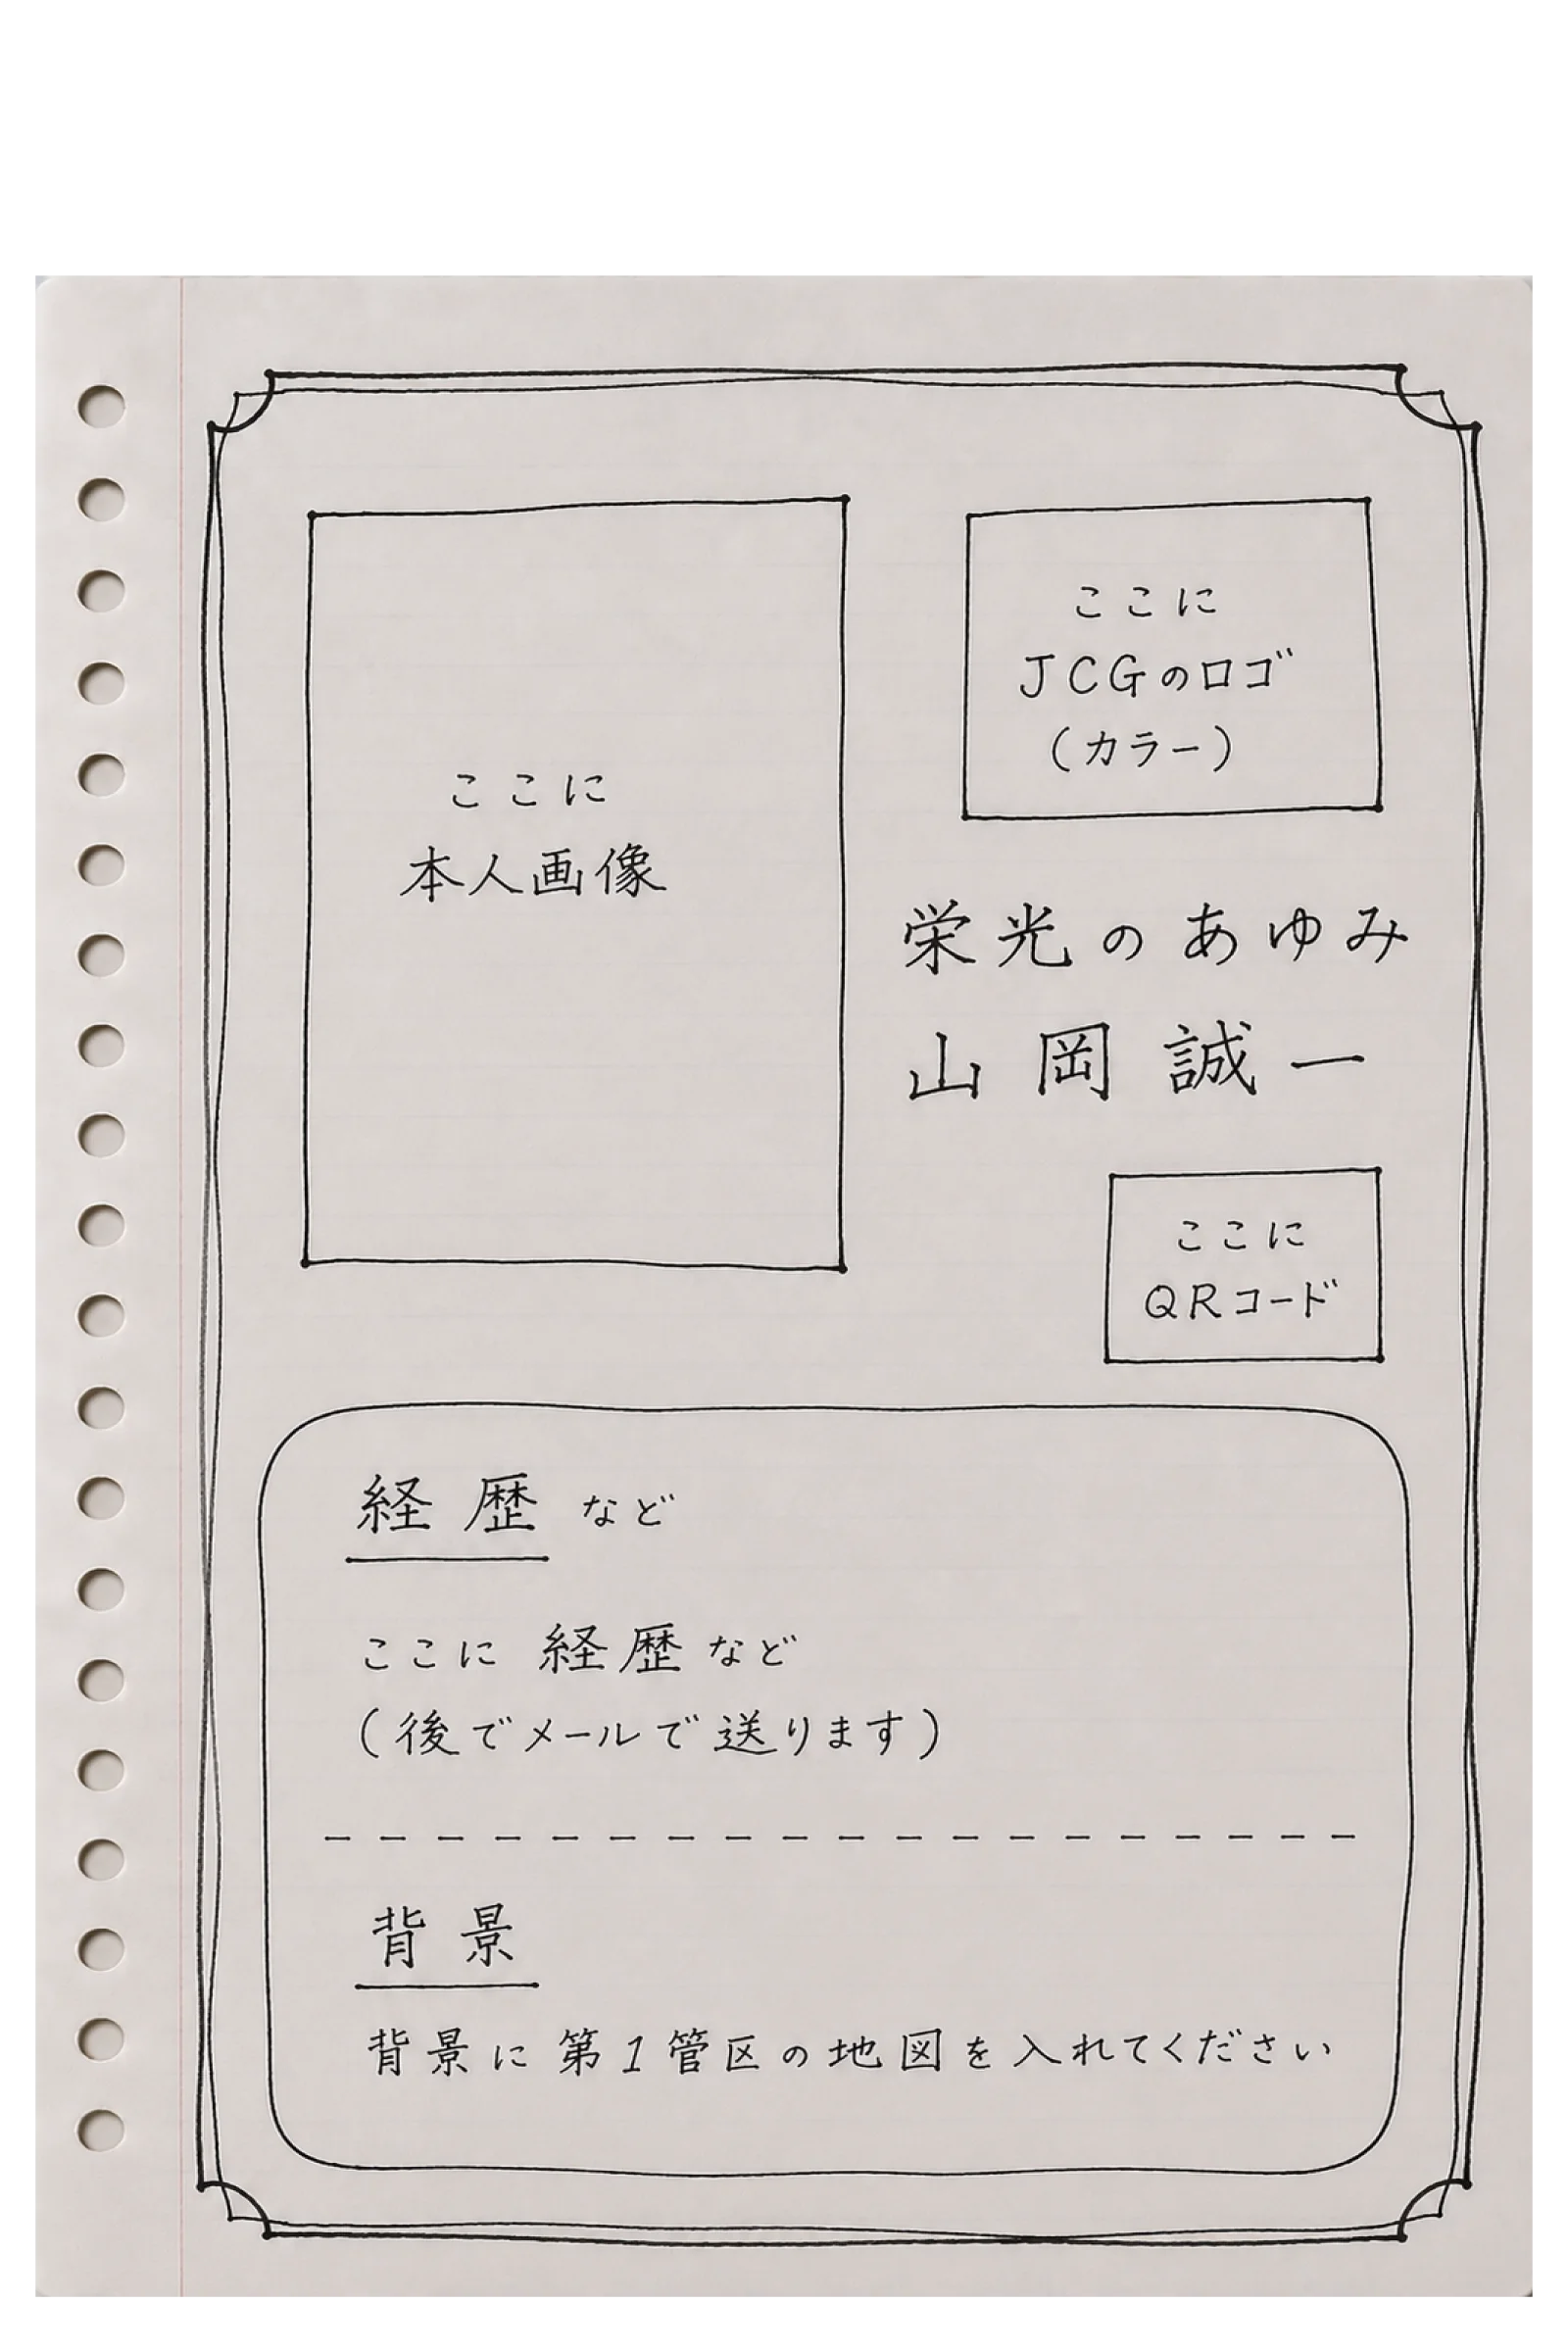 ここに
本人画像
ここに
JCGのロゴ
(カラー)
栄光のあゆみ
山岡誠一
ここに
QRコード
経歴など
ここに 経歴など
(後でメールで送ります)
背景
背景に第1管区の地図を入れてください